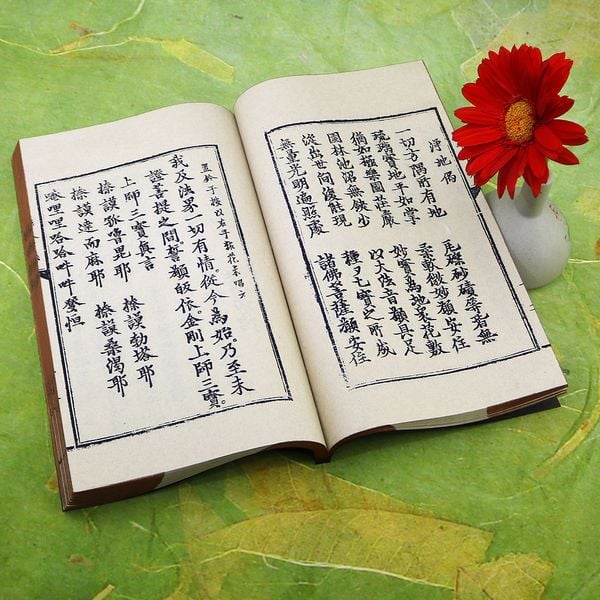 淨地偈
一切方隅所有地 瓦礫砂磧等皆無
琉璃寶地平如掌 柔軟微妙願安住
猶如極樂國莊嚴 妙寶為地眾花敷
園林池沼無缺少 以大法音願具足
從出世間復能現 種々七寶之所成
無量光明遍照處 諸佛菩薩願安住
我及法界一切有情。從今為始。乃至未
證菩提之間誓願皈依。金剛上師三寶。
上師三寶真言
捺謨孤嚕毘耶 捺謨勃塔耶
捺謨達而麻耶 捺謨桑渴耶
哩哩哈哈吽吽